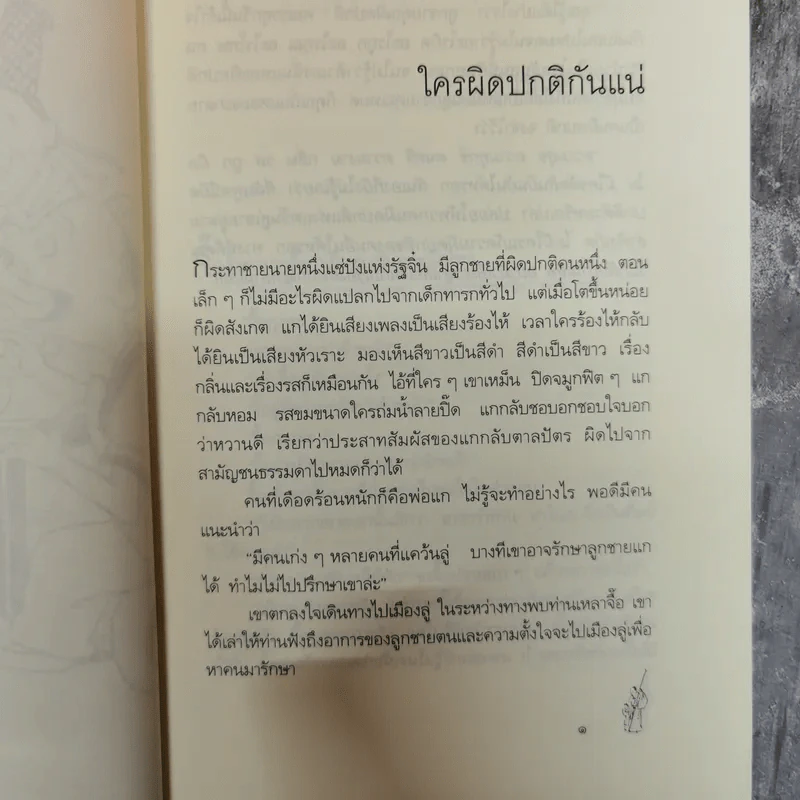 ใครผิดปกติกันแน่
กระทาชายนายหนึ่งแซ่ปังแห่งรัฐจิ๋น มีลูกชายที่ผิดปกติคนหนึ่ง ตอน
เล็ก ๆ ก็ไม่มีอะไรผิดแปลกไปจากเด็กทารกทั่วไป แต่เมื่อโตขึ้นหน่อย
ก็ผิดสังเกต แกได้ยินเสียงเพลงเป็นเสียงร้องไห้ เวลาใครร้องไห้กลับ
ได้ยินเป็นเสียงหัวเราะ มองเห็นสีขาวเป็นสีดำ สีดำเป็นสีขาว เรื่อง
กลิ่นและเรื่องรสก็เหมือนกัน ไอ้ที่ใคร ๆ เขาเหม็น ปิดจมูกฟิต ๆ แก
กลับหอม รสขมขนาดใครถ่มน้ำลายปี๊ด แกกลับชอบอกชอบใจบอก
ว่าหวานดี เรียกว่าประสาทสัมผัสของแกกลับตาลปัตร ผิดไปจาก
สามัญชนธรรมดาไปหมดก็ว่าได้
คนที่เดือดร้อนหนักก็คือพ่อแก ไม่รู้จะทำอย่างไร พอดีมีคน
แนะนำว่า
"มีคนเก่ง ๆ หลายคนที่แคว้นลู่ บางทีเขาอาจรักษาลูกชายแก
ได้ ทำไมไม่ไปปรึกษาเขาล่ะ"
เขาตกลงใจเดินทางไปเมืองลู่ ในระหว่างทางพบท่านเหลาจื๊อ เขา
ได้เล่าให้ท่านฟังถึงอาการของลูกชายตนและความตั้งใจจะไปเมืองลู่เพื่อ
หาคนมารักษา
๑